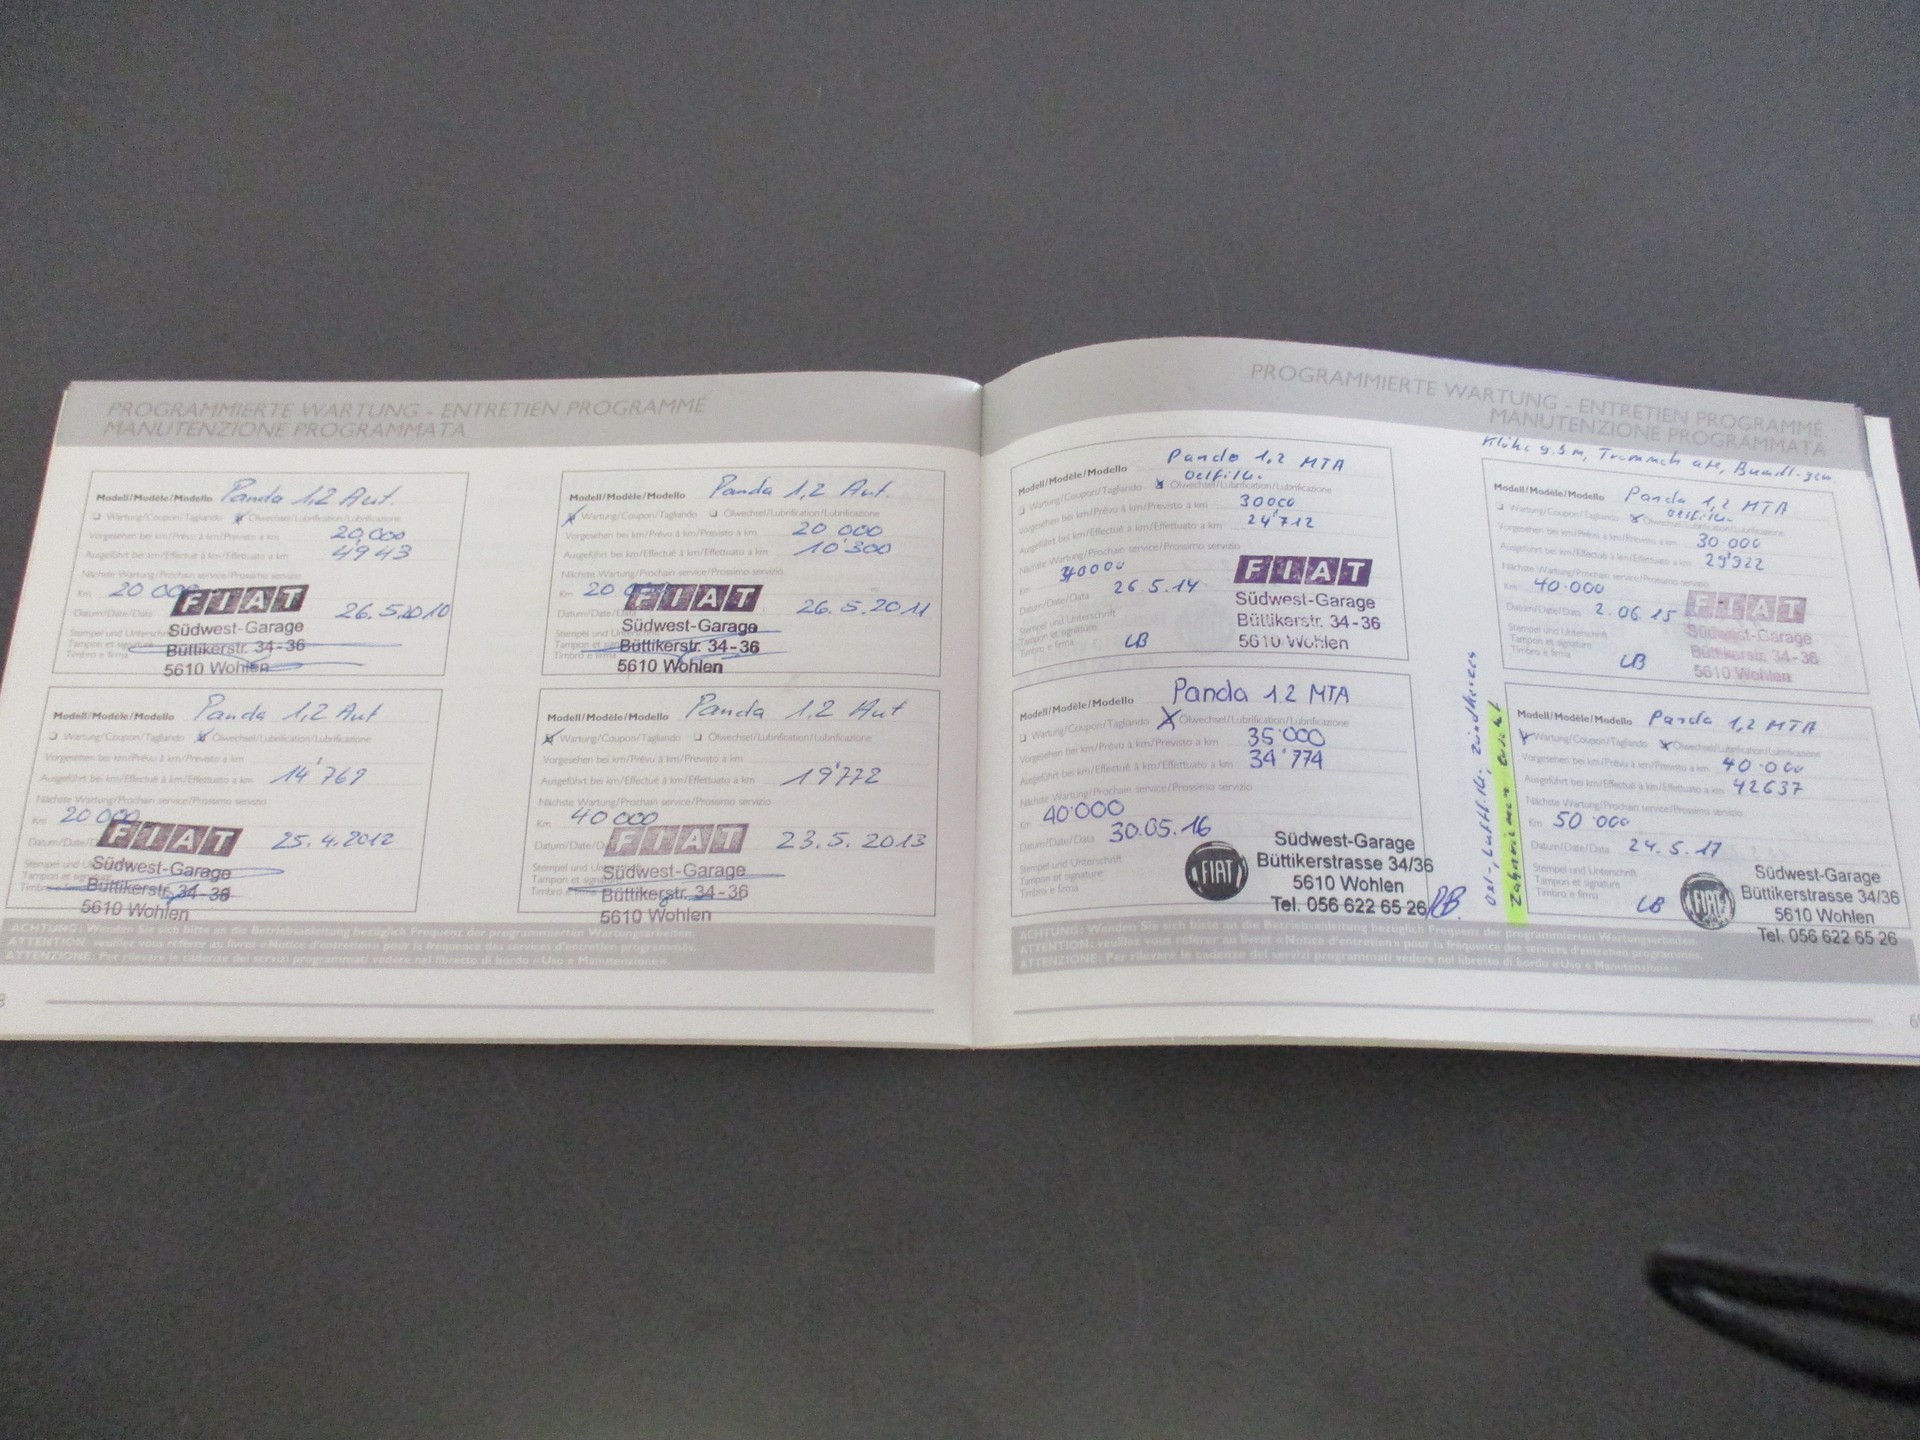 PROGRAMMIERTE WARTUNG - ENTRETIEN PROGRAMMÉ
MANUTENZIONE PROGRAMMATA
Modell/Modèle/Modello Panda 1,2 Aut.
Wartung/Coupon/Tagliando Ölwechsel/Lubrification/Lubrificazione
Vorgesehen bei km/Prévu à km/Previsto a km 20,000
Ausgeführt bei km/Effectué à km/Effettuato a km 4943
Nächste Wartung/Prochain service/Prossimo servizio
Km 20 000
Datum/Date/Data 26.5.2010
Stempel und Unterschrift
Tampon et signature
Timbro e firma
FIAT
Südwest-Garage
Büttikerstr. 34-36
5610 Wohlen
Modell/Modèle/Modello Panda 1,2 Aut.
Wartung/Coupon/Tagliando Ölwechsel/Lubrification/Lubrificazione
Vorgesehen bei km/Prévu à km/Previsto a km 20 000
Ausgeführt bei km/Effectué à km/Effettuato a km 10'300
Nächste Wartung/Prochain service/Prossimo servizio
Km 20
Datum/Date/Data 26.5.2011
Stempel und Unterschrift
Tampon et signature
Timbro e firma
FIAT
Südwest-Garage
Büttikerstr. 34-36
5610 Wohlen
Modell/Modèle/Modello Panda 1,2 Aut
Wartung/Coupon/Tagliando Ölwechsel/Lubrification/Lubrificazione
Vorgesehen bei km/Prévu à km/Previsto a km
Ausgeführt bei km/Effectué à km/Effettuato a km 14'769
Nächste Wartung/Prochain service/Prossimo servizio
Km 20 000
Datum/Date/Data 25.4.2012
Stempel und Unterschrift
Tampon et signature
Timbro e firma
FIAT
Südwest-Garage
Büttikerstr. 34-36
5610 Wohlen
Modell/Modèle/Modello Panda 1,2 Aut
Wartung/Coupon/Tagliando Ölwechsel/Lubrification/Lubrificazione
Vorgesehen bei km/Prévu à km/Previsto a km
Ausgeführt bei km/Effectué à km/Effettuato a km 19'772
Nächste Wartung/Prochain service/Prossimo servizio
Km 40 000
Datum/Date/Data 23.5.2013
Stempel und Unterschrift
Tampon et signature
Timbro e firma
FIAT
Südwest-Garage
Büttikerstr. 34-36
5610 Wohlen
ACHTUNG: Wenden Sie sich bitte an die Betriebsanleitung bezüglich Frequenz der programmierten Wartungsarbeiten.
ATTENTION: veuillez vous référer au livret «Notice d'entretien» pour la fréquence des services d'entretien programmés.
ATTENZIONE: Per rilevare le cadenze dei servizi programmati vedere nel libretto di bordo «Uso e Manutenzione».
PROGRAMMIERTE WARTUNG - ENTRETIEN PROGRAMMÉ
MANUTENZIONE PROGRAMMATA
Modell/Modèle/Modello Panda 1,2 MTA
Oelfilter
Wartung/Coupon/Tagliando Ölwechsel/Lubrification/Lubrificazione
Vorgesehen bei km/Prévu à km/Previsto a km 30000
Ausgeführt bei km/Effectué à km/Effettuato a km 24'712
Nächste Wartung/Prochain service/Prossimo servizio
Km
Datum/Date/Data 26 5.14
Stempel und Unterschrift
Tampon et signature
Timbro e firma
FIAT
Südwest-Garage
Büttikerstr. 34-36
5610 Wohlen
Modell/Modèle/Modello Panda 1,2 MTA
Oelfilter
Wartung/Coupon/Tagliando Ölwechsel/Lubrification/Lubrificazione
Vorgesehen bei km/Prévu à km/Previsto a km 30 000
Ausgeführt bei km/Effectué à km/Effettuato a km 29'922
Nächste Wartung/Prochain service/Prossimo servizio
Km 40.000
Datum/Date/Data 2.06.15
Stempel und Unterschrift
Tampon et signature
Timbro e firma
FIAT
Südwest-Garage
Büttikerstr. 34-36
5610 Wohlen
Modell/Modèle/Modello Panda 1.2 MTA
Wartung/Coupon/Tagliando Ölwechsel/Lubrification/Lubrificazione
Vorgesehen bei km/Prévu à km/Previsto a km 35'000
Ausgeführt bei km/Effectué à km/Effettuato a km 34'774
Nächste Wartung/Prochain service/Prossimo servizio
Km 40'000
Datum/Date/Data 30.05.16
Stempel und Unterschrift
Tampon et signature
Timbro e firma
FIAT
Südwest-Garage
Büttikerstrasse 34/36
5610 Wohlen
Tel. 056 622 65 26
Zahnriemen ersetzt
Modell/Modèle/Modello Panda 1,2 MTA
Wartung/Coupon/Tagliando Ölwechsel/Lubrification/Lubrificazione
Vorgesehen bei km/Prévu à km/Previsto a km 40.000
Ausgeführt bei km/Effectué à km/Effettuato a km 42637
Nächste Wartung/Prochain service/Prossimo servizio
Km 50.000
Datum/Date/Data 24.5.17
Stempel und Unterschrift
Tampon et signature
Timbro e firma
FIAT
Südwest-Garage
Büttikerstrasse 34/36
5610 Wohlen
Tel. 056 622 65 26
ACHTUNG: Wenden Sie sich bitte an die Betriebsanleitung bezüglich Frequenz der programmierten Wartungsarbeiten.
ATTENTION: veuillez vous référer au livret «Notice d'entretien» pour la fréquence des services d'entretien programmés.
ATTENZIONE: Per rilevare le cadenze dei servizi programmati vedere nel libretto di bordo «Uso e Manutenzione».